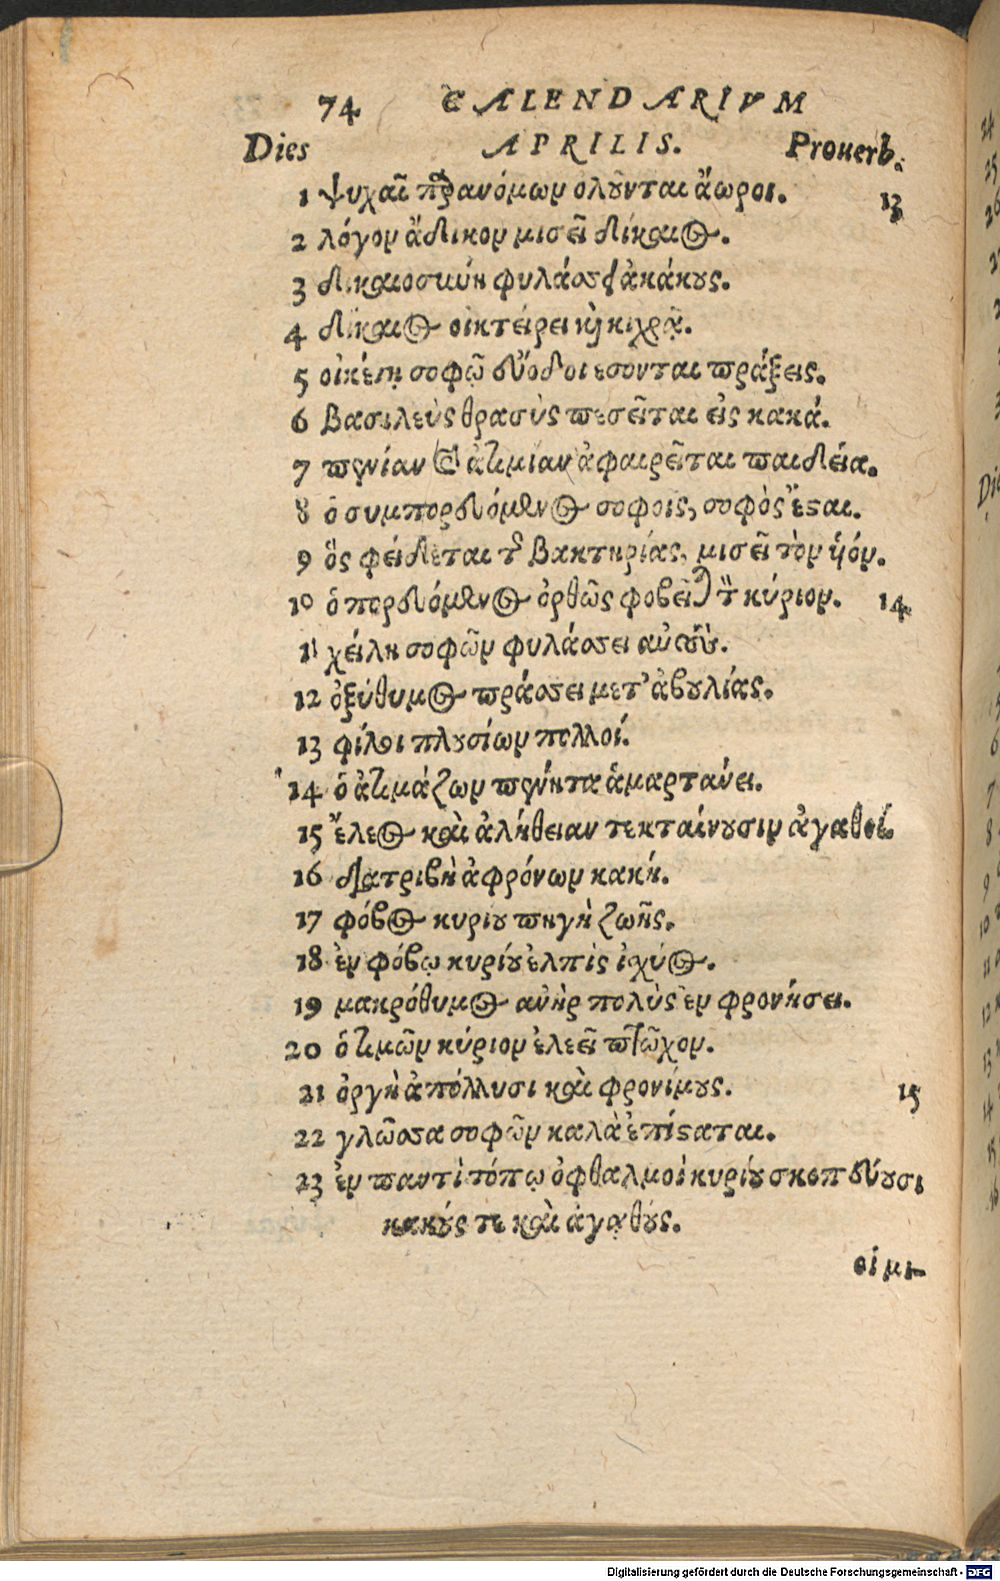 74 CALENDARIVM
Dies APRILIS. Prouerb.
1 ψυχαὶ παρανόμων ολοῦνται ἄωροι. 13
2 λόγον ἄδικον μισεῖ δίκαιος.
3 δικαιοσύνη φυλάσσει ἀκάκους.
4 δίκαιος οἰκτείρει καὶ κιχρᾷ.
5 οἰκέτῃ σοφῷ εὔοδοι εσονται πράξεις.
6 βασιλεὺς θρασὺς πεσεῖται εἰς κακά.
7 πενίαν καὶ ἀτιμίαν ἀφαιρεῖται παιδεία.
8 ὁ συμπορευόμενος σοφοις, σοφὸς ἔσται.
9 ὃς φείδεται τῆς βακτηρίας, μισεῖ τὸν ὑόν.
10 ὁ πορευόμενος ὀρθῶς φοβεῖται τὸν κύριον. 14
11 χείλη σοφῶν φυλάσσει αὐτούς.
12 ὀξύθυμος πράσσει μετ' ἀβουλίας.
13 φίλοι πλουσίων πολλοί.
14 ὁ ἀτιμάζων πένητα ἁμαρτάνει.
15 ἔλεος καὶ ἀλήθειαν τεκταίνουσιν ἀγαθοί.
16 διατριβὴ ἀφρόνων κακή.
17 φόβος κυρίου πηγὴ ζωῆς.
18 ἐν φόβῳ κυρίου ἐλπὶς ἰχύος.
19 μακρόθυμος ανὴρ πολὺς ἐν φρονήσει.
20 ὁ τιμῶν κύριον ἐλεεῖ πτῶχον.
21 ὀργὴ ἀπόλλυσι καὶ φρονίμους. 15
22 γλῶσσα σοφῶν καλὰ ἐπίσταται.
23 ἐν παντὶ τόπῳ ὀφθαλμοὶ κυρίου σκοπεύουσι
κακούς τε καὶ ἀγαθούς.
οἱ μι-
Digitalisierung gefördert durch die Deutsche Forschungsgemeinschaft - DFG